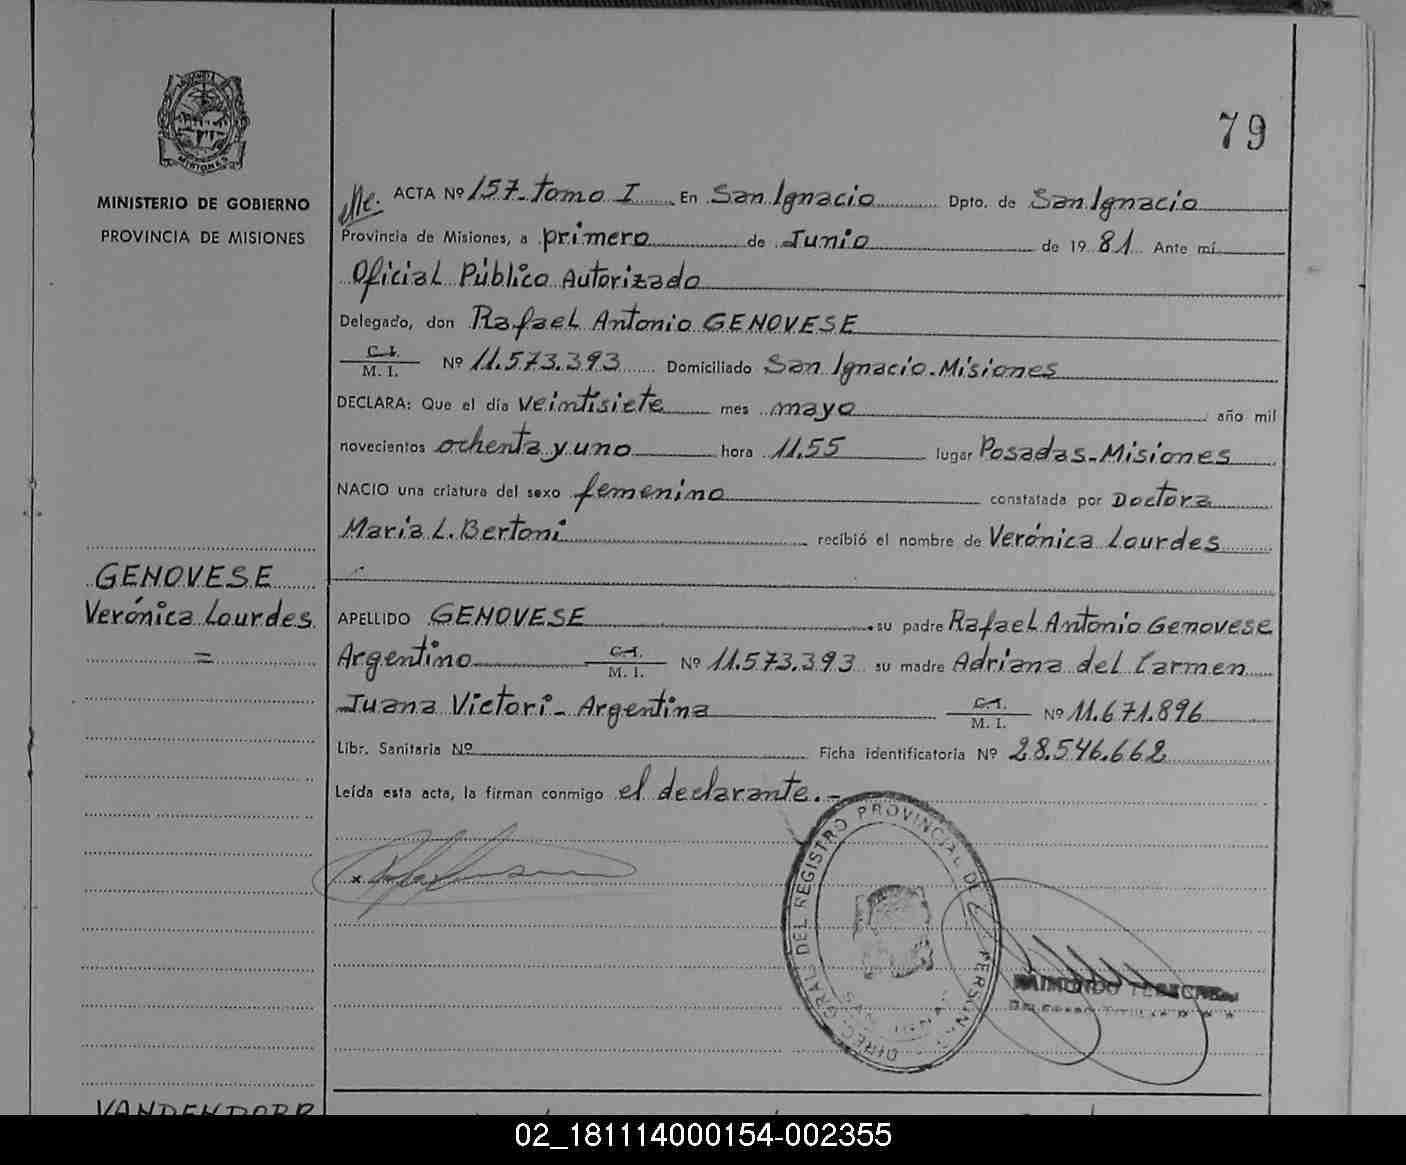 79
MINISTERIO DE GOBIERNO
PROVINCIA DE MISIONES
MISIONES
GENOVESE
Verónica Lourdes
=
ACTA Nº 157-Tomo I En San Ignacio Dpto. de San Ignacio
Provincia de Misiones, a primero de Junio de 19 81 Ante mí
Oficial Público Autorizado
Delegado, don Rafael Antonio GENOVESE
C.I. M. I. Nº 11.573.393 Domiciliado San Ignacio-Misiones
DECLARA: Que el día veintisiete mes mayo año mil
novecientos ochenta y uno hora 11.55 lugar Posadas-Misiones
NACIO una criatura del sexo femenino constatada por Doctora
María L. Bertoni recibió el nombre de Verónica Lourdes
APELLIDO GENOVESE su padre Rafael Antonio Genovese
Argentino C.I. M. I. Nº 11.573.393 su madre Adriana del Carmen
Juana Victori- Argentina C.I. M. I. Nº 11.671.896
Libr. Sanitaria Nº Ficha identificatoria Nº 28.546.662
Leída esta acta, la firman conmigo el declarante.-
x
DIREC. GRAL. DEL REGISTRO PROVINCIAL DE
VANDENDORP
02_181114000154-002355